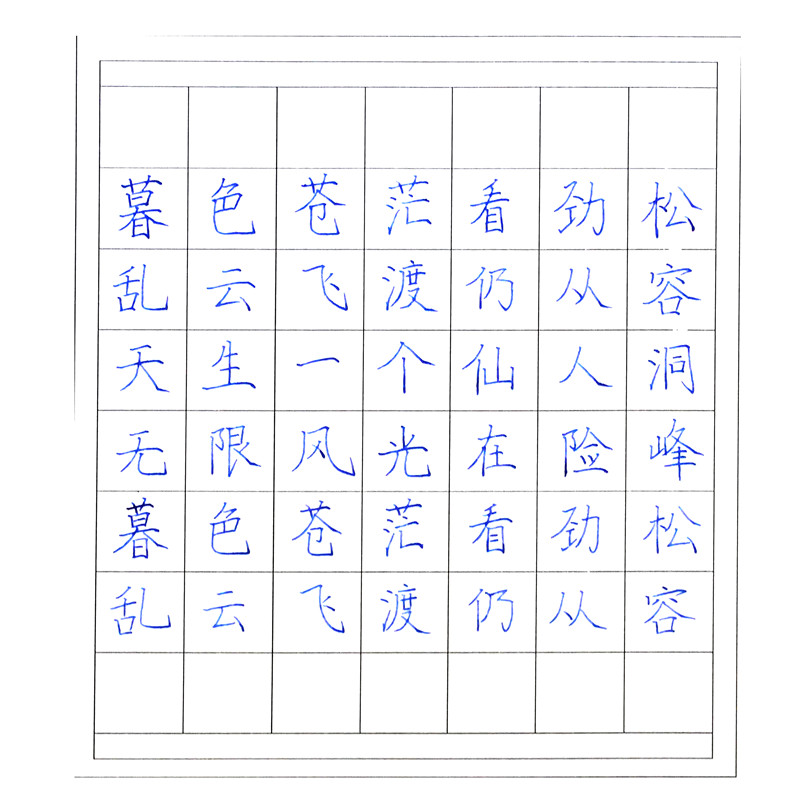 暮色苍茫看劲松
乱云飞渡仍从容
天生一个仙人洞
无限风光在险峰
暮色苍茫看劲松
乱云飞渡仍从容